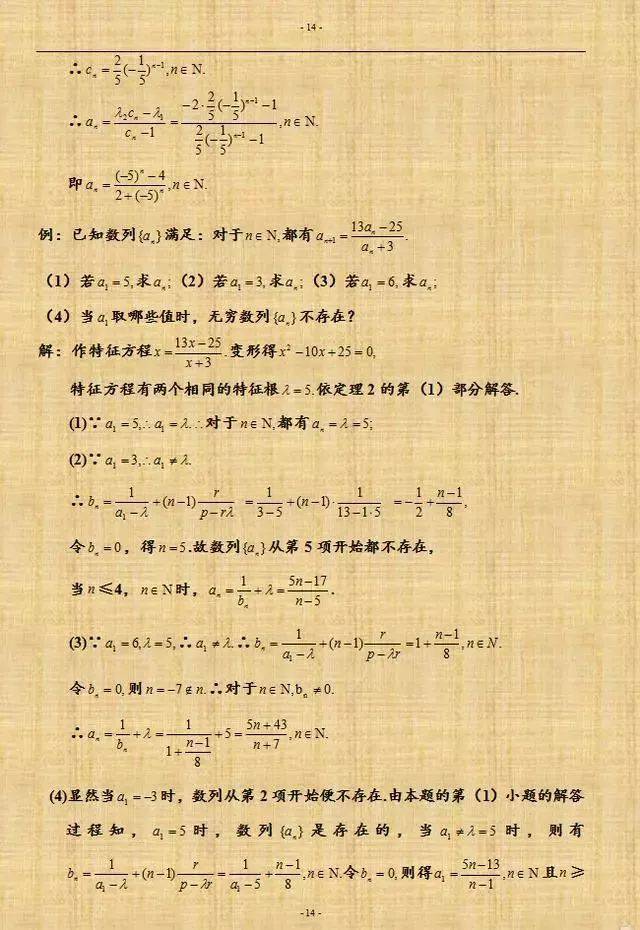 - 14 -
∴ cₙ = 2/5(-1/5)ⁿ⁻¹, n∈N.
∴ aₙ = (λ₂cₙ - λ₁)/(cₙ - 1) = (-2·2/5(-1/5)ⁿ⁻¹ - 1)/(2/5(-1/5)ⁿ⁻¹ - 1), n∈N.
即 aₙ = ((-5)ⁿ - 4)/(2 + (-5)ⁿ), n∈N.
例：已知数列{aₙ}满足：对于n∈N,都有aₙ₊₁ = (13aₙ - 25)/(aₙ + 3).
（1）若a₁ = 5,求aₙ;（2）若a₁ = 3,求aₙ;（3）若a₁ = 6,求aₙ;
（4）当a₁取哪些值时，无穷数列{aₙ}不存在？
解：作特征方程x = (13x - 25)/(x + 3).变形得x² - 10x + 25 = 0,
特征方程有两个相同的特征根λ = 5.依定理2的第（1）部分解答.
(1)∵ a₁ = 5,∴ a₁ = λ.∴对于n∈N,都有aₙ = λ = 5;
(2)∵ a₁ = 3,∴ a₁ ≠ λ.
∴ bₙ = 1/(a₁ - λ) + (n-1) r/(p - rλ) = 1/(3-5) + (n-1)· 1/(13-1·5) = -1/2 + (n-1)/8,
令bₙ = 0，得n = 5.故数列{aₙ}从第5项开始都不存在，
当n≤4，n∈N时，aₙ = 1/bₙ + λ = (5n-17)/(n-5).
(3)∵ a₁ = 6,λ = 5,∴ a₁ ≠ λ.∴ bₙ = 1/(a₁ - λ) + (n-1) r/(p - λr) = 1 + (n-1)/8, n∈N.
令bₙ = 0,则n = -7∉n.∴对于n∈N,bₙ ≠ 0.
∴ aₙ = 1/bₙ + λ = 1/(1 + (n-1)/8) + 5 = (5n + 43)/(n + 7), n∈N.
(4)显然当a₁ = -3时，数列从第2项开始便不存在.由本题的第（1）小题的解答
过程知，a₁ = 5时，数列{aₙ}是存在的，当a₁ ≠ λ = 5时，则有
bₙ = 1/(a₁ - λ) + (n-1) r/(p - λr) = 1/(a₁ - 5) + (n-1)/8, n∈N.令bₙ = 0,则得a₁ = (5n-13)/(n-1), n∈N且n≥
- 14 -